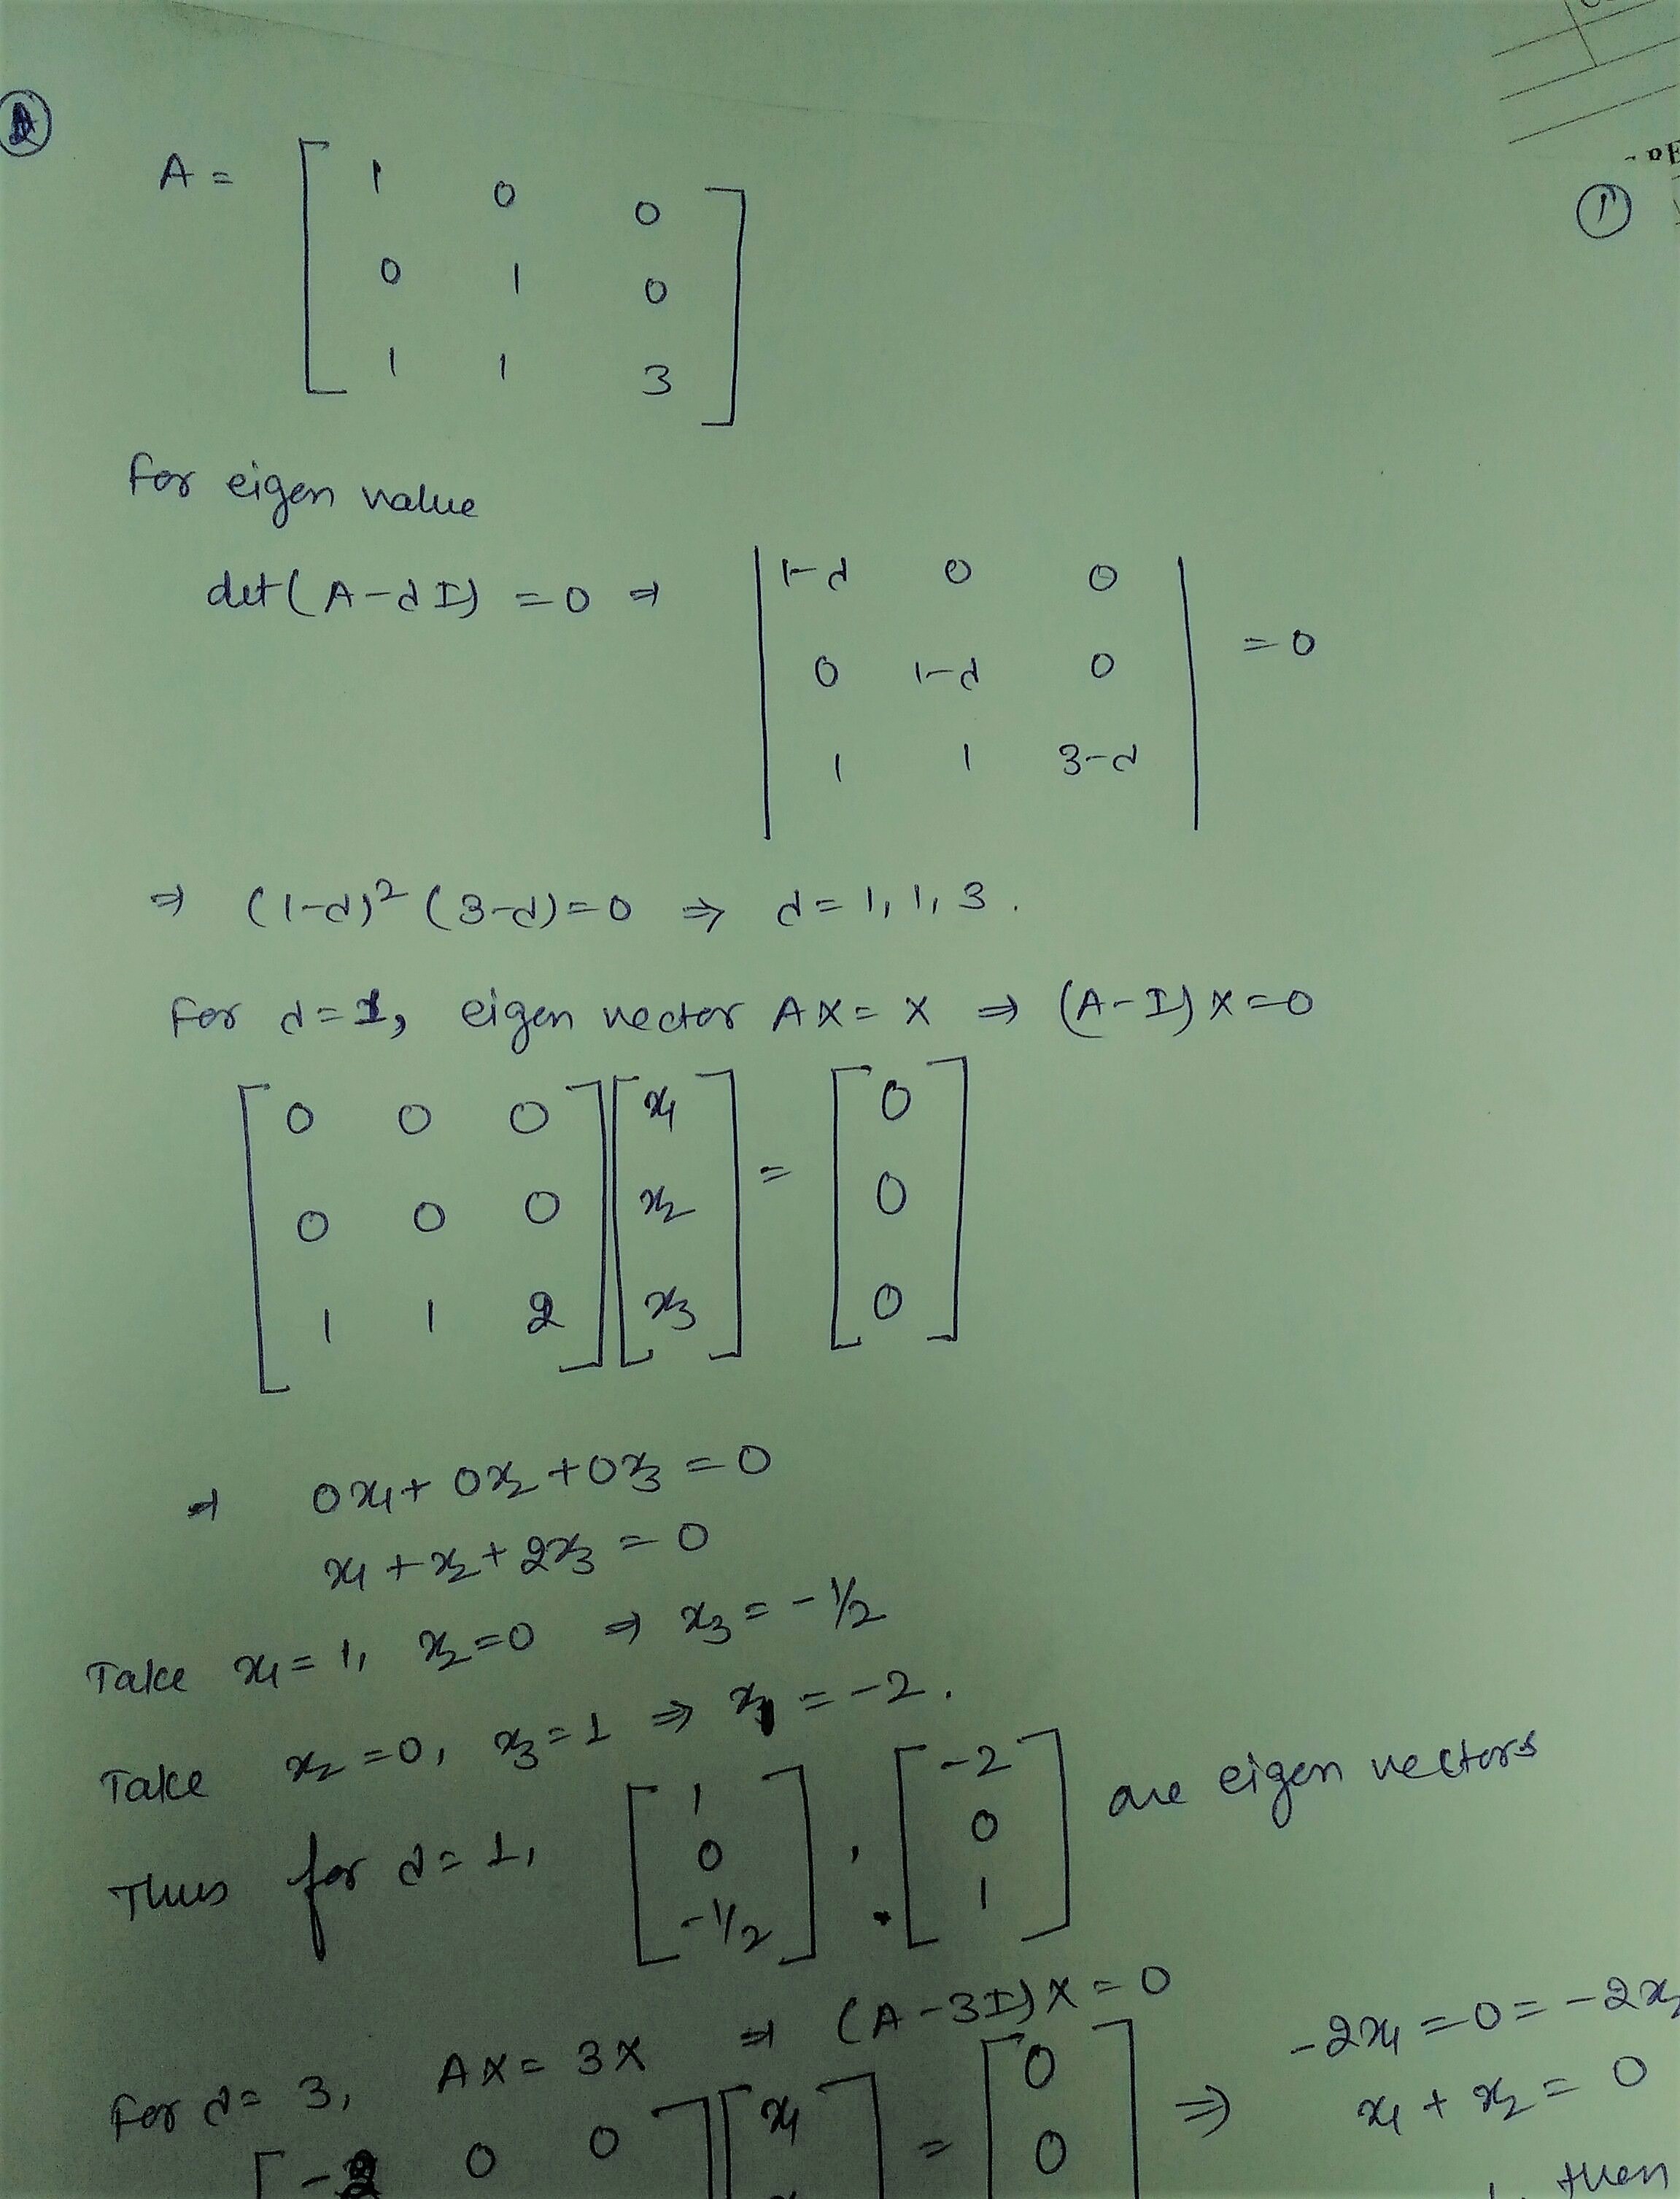 A = [ 1 0 0
0 1 0
1 1 3 ]
①
For eigen value
det(A-λI) = 0 ⇒ | 1-λ 0 0
0 1-λ 0
1 1 3-λ | = 0
⇒ (1-λ)² (3-λ)=0 ⇒ λ = 1, 1, 3.
For λ=1, eigen vector AX = X ⇒ (A-I)X=0
[ 0 0 0 ] [ x₁ ] = [ 0 ]
[ 0 0 0 ] [ x₂ ] = [ 0 ]
[ 1 1 2 ] [ x₃ ] = [ 0 ]
⇒ 0x₁+ 0x₂ +0x₃ = 0
x₁ + x₂ + 2x₃ = 0
Take x₁ = 1, x₂=0 ⇒ x₃ = -1/2
Take x₂ = 0, x₃=1 ⇒ x₁ = -2.
Thus for λ= 1, [ 1 0 -1/2 ], [ -2 0 1 ] are eigen vectors
For λ= 3, AX= 3X ⇒ (A-3I)X=0
[ -2 0 0 ] [ x₁ = [ 0 0 ⇒ -2x₁ = 0 = -2x₂
x₁ + x₂ = 0
then